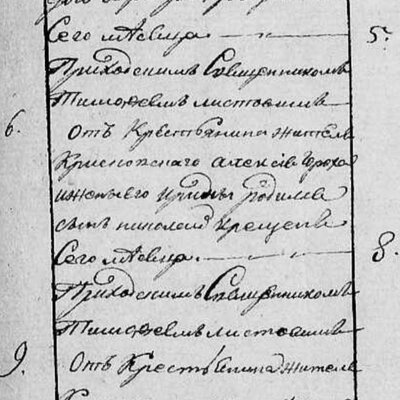 Сего мѣсяца 5.
Приходскимъ Священникомъ
Тимофеемъ Листовымъ
6. Отъ Крестьянина жителя
Краснопскаго Алексѣя
и жены его Ирины Родился
сынъ Николай Крещенъ
Сего мѣсяца 8.
Приходскимъ Священникомъ
Тимофеемъ Листовымъ
9. Отъ Крестьянина жителя